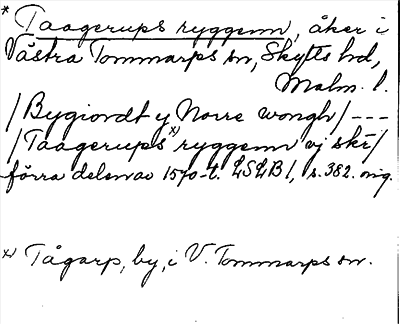 * Taagerups ryggenn, åker i
Västra Tommarps sn, Skytts hd,
Malm. l.
/ Bygiordt y Norre wongh / ---
/ Taagerups x) ryggenn vj skr /
förra delen av 1570-t. LSLB 1, s. 382. orig.
x) Tågarp, by, i V. Tommarps sn.